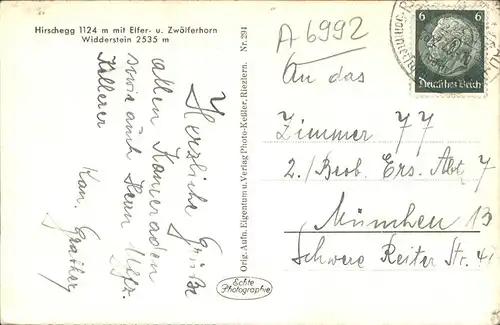 Hirschegg 1124 m mit Elfer- u. Zwölferhorn
Widderstein 2535 m
A 6992
6 6
Deutsches Reich
An das
Zimmer 77
2./ Beob. Ers. Abt. 7
München 13
Schwere Reiter Str. 41
Herzliche Grüße
allen Kameraden
sowie auch Herrn
Kellerer
Kan.
Orig. Aufn. Eigentum u. Verlag Photo-Keßler, Riezlern. Nr. 291
Echte
Photographie